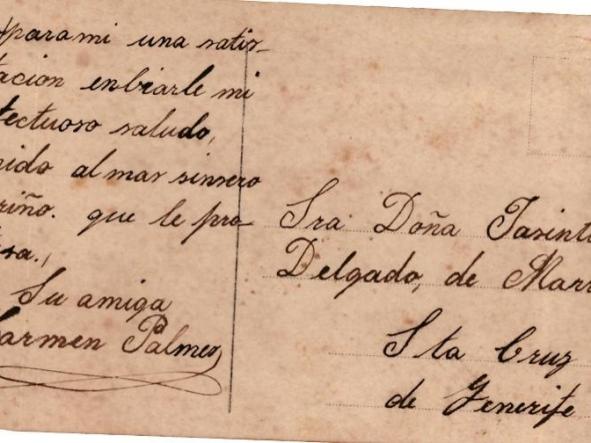 para mi una satis-
tacion enbiarle mi
fectuoso saludo,
nido al mas sinsero
riño. que le pro-
sa.,
Su amiga
Carmen Palmes
Sra Doña Jasinta
Delgado, de Marr
Sta Cruz
de Tenerife